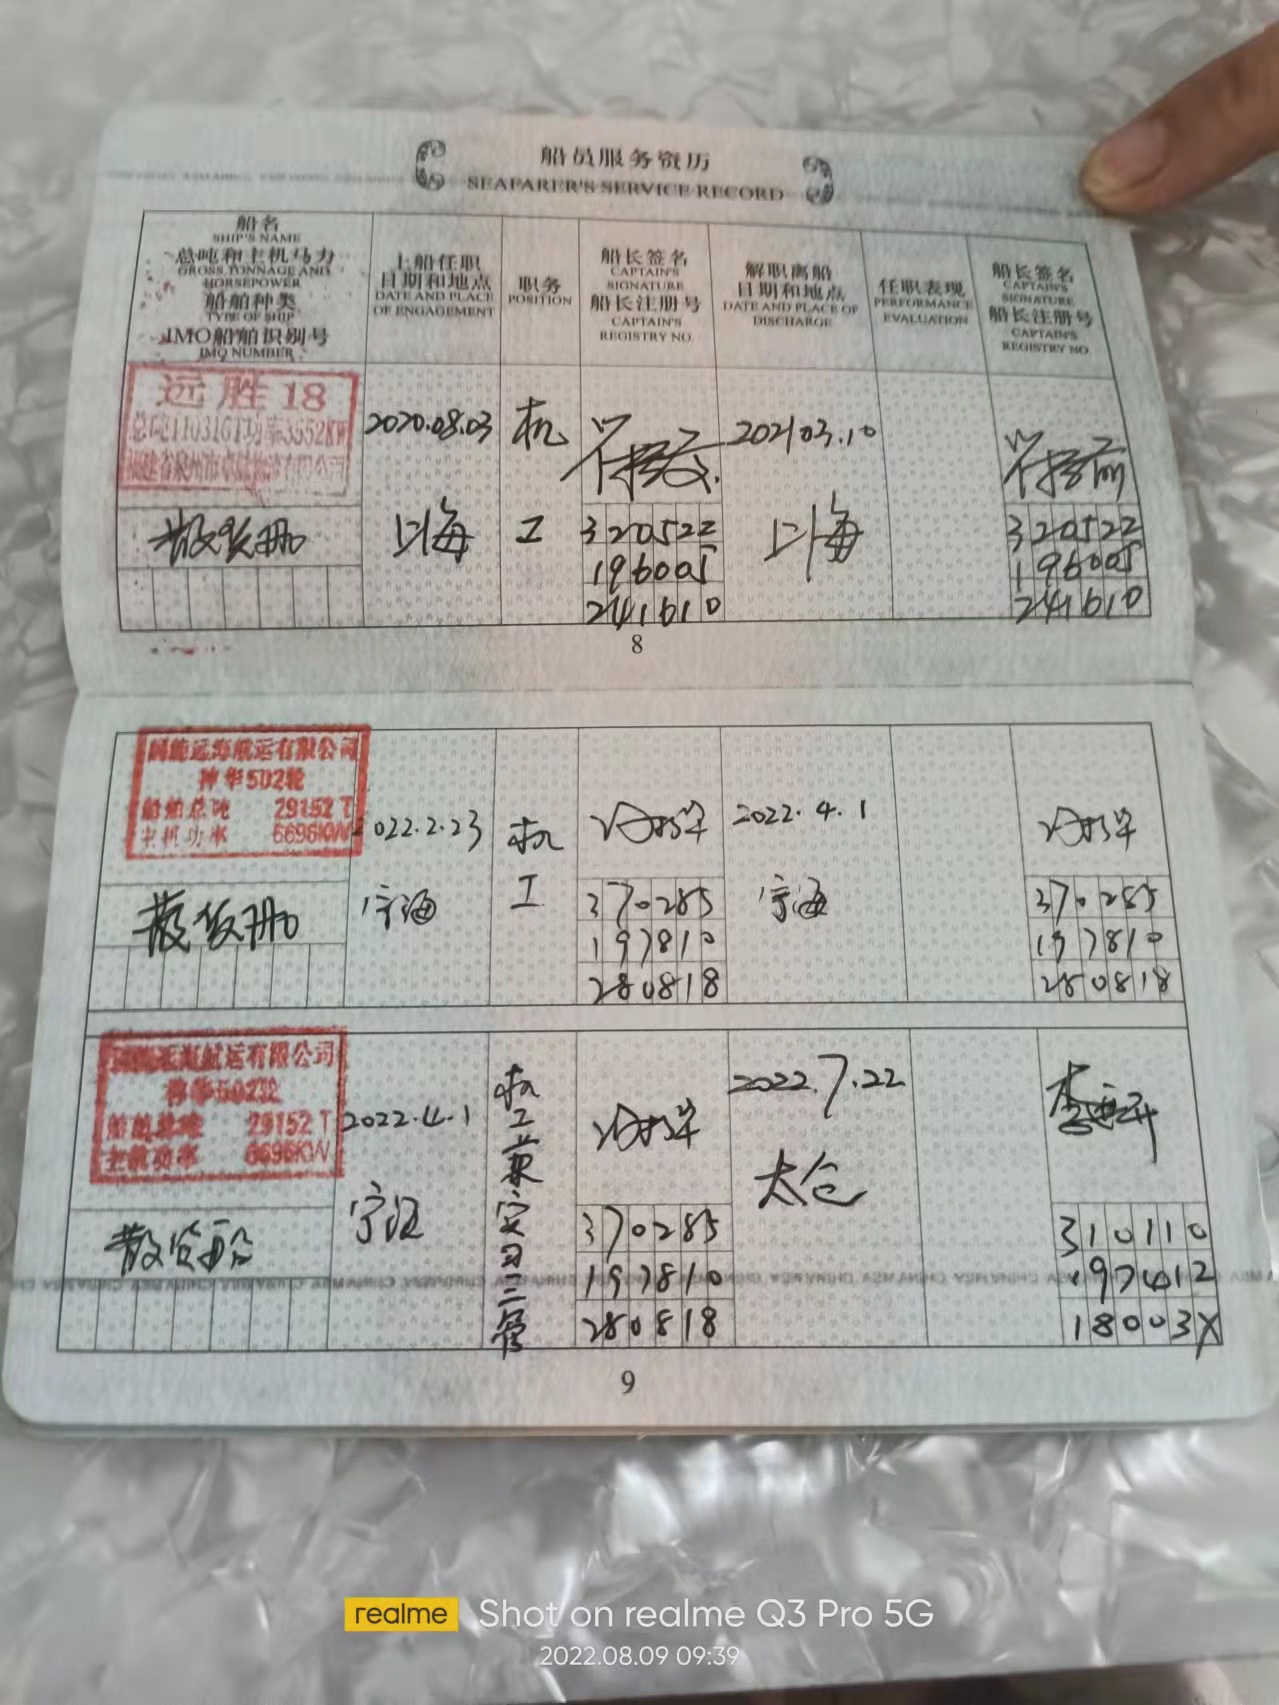 船员服务资历
SEAFARER'S SERVICE RECORD
船名
SHIP'S NAME
总吨和主机马力
GROSS TONNAGE AND
HORSEPOWER
船舶种类
TYPE OF SHIP
IMO船舶识别号
IMO NUMBER
上船任职
日期和地点
DATE AND PLACE
OF ENGAGEMENT
职务
POSITION
船长签名
CAPTAIN'S
SIGNATURE
船长注册号
CAPTAIN'S
REGISTRY NO.
解职离船
日期和地点
DATE AND PLACE OF
DISCHARGE
任职表现
PERFORMANCE
EVALUATION
船长签名
CAPTAIN'S
SIGNATURE
船长注册号
CAPTAIN'S
REGISTRY NO.
远胜18
散货船
2020.08.03
上海
机
工
320522
196005
241610
2021.03.10
上海
320522
196005
241610
8
国能远海航运有限公司
神华502轮
船舶总吨 29152 T
主机功率 6696KW
散货船
2022.2.23
宁海
机
工
370285
197810
280818
2022.4.1
宁海
370285
197810
280818
国能远海航运有限公司
神华502轮
船舶总吨 29152 T
主机功率 6696KW
散货船
2022.4.1
宁海
机
工
兼
实
习
三
管
370285
197810
280818
2022.7.22
太仓
310110
197412
18003X
9
realme Shot on realme Q3 Pro 5G
2022.08.09 09:39